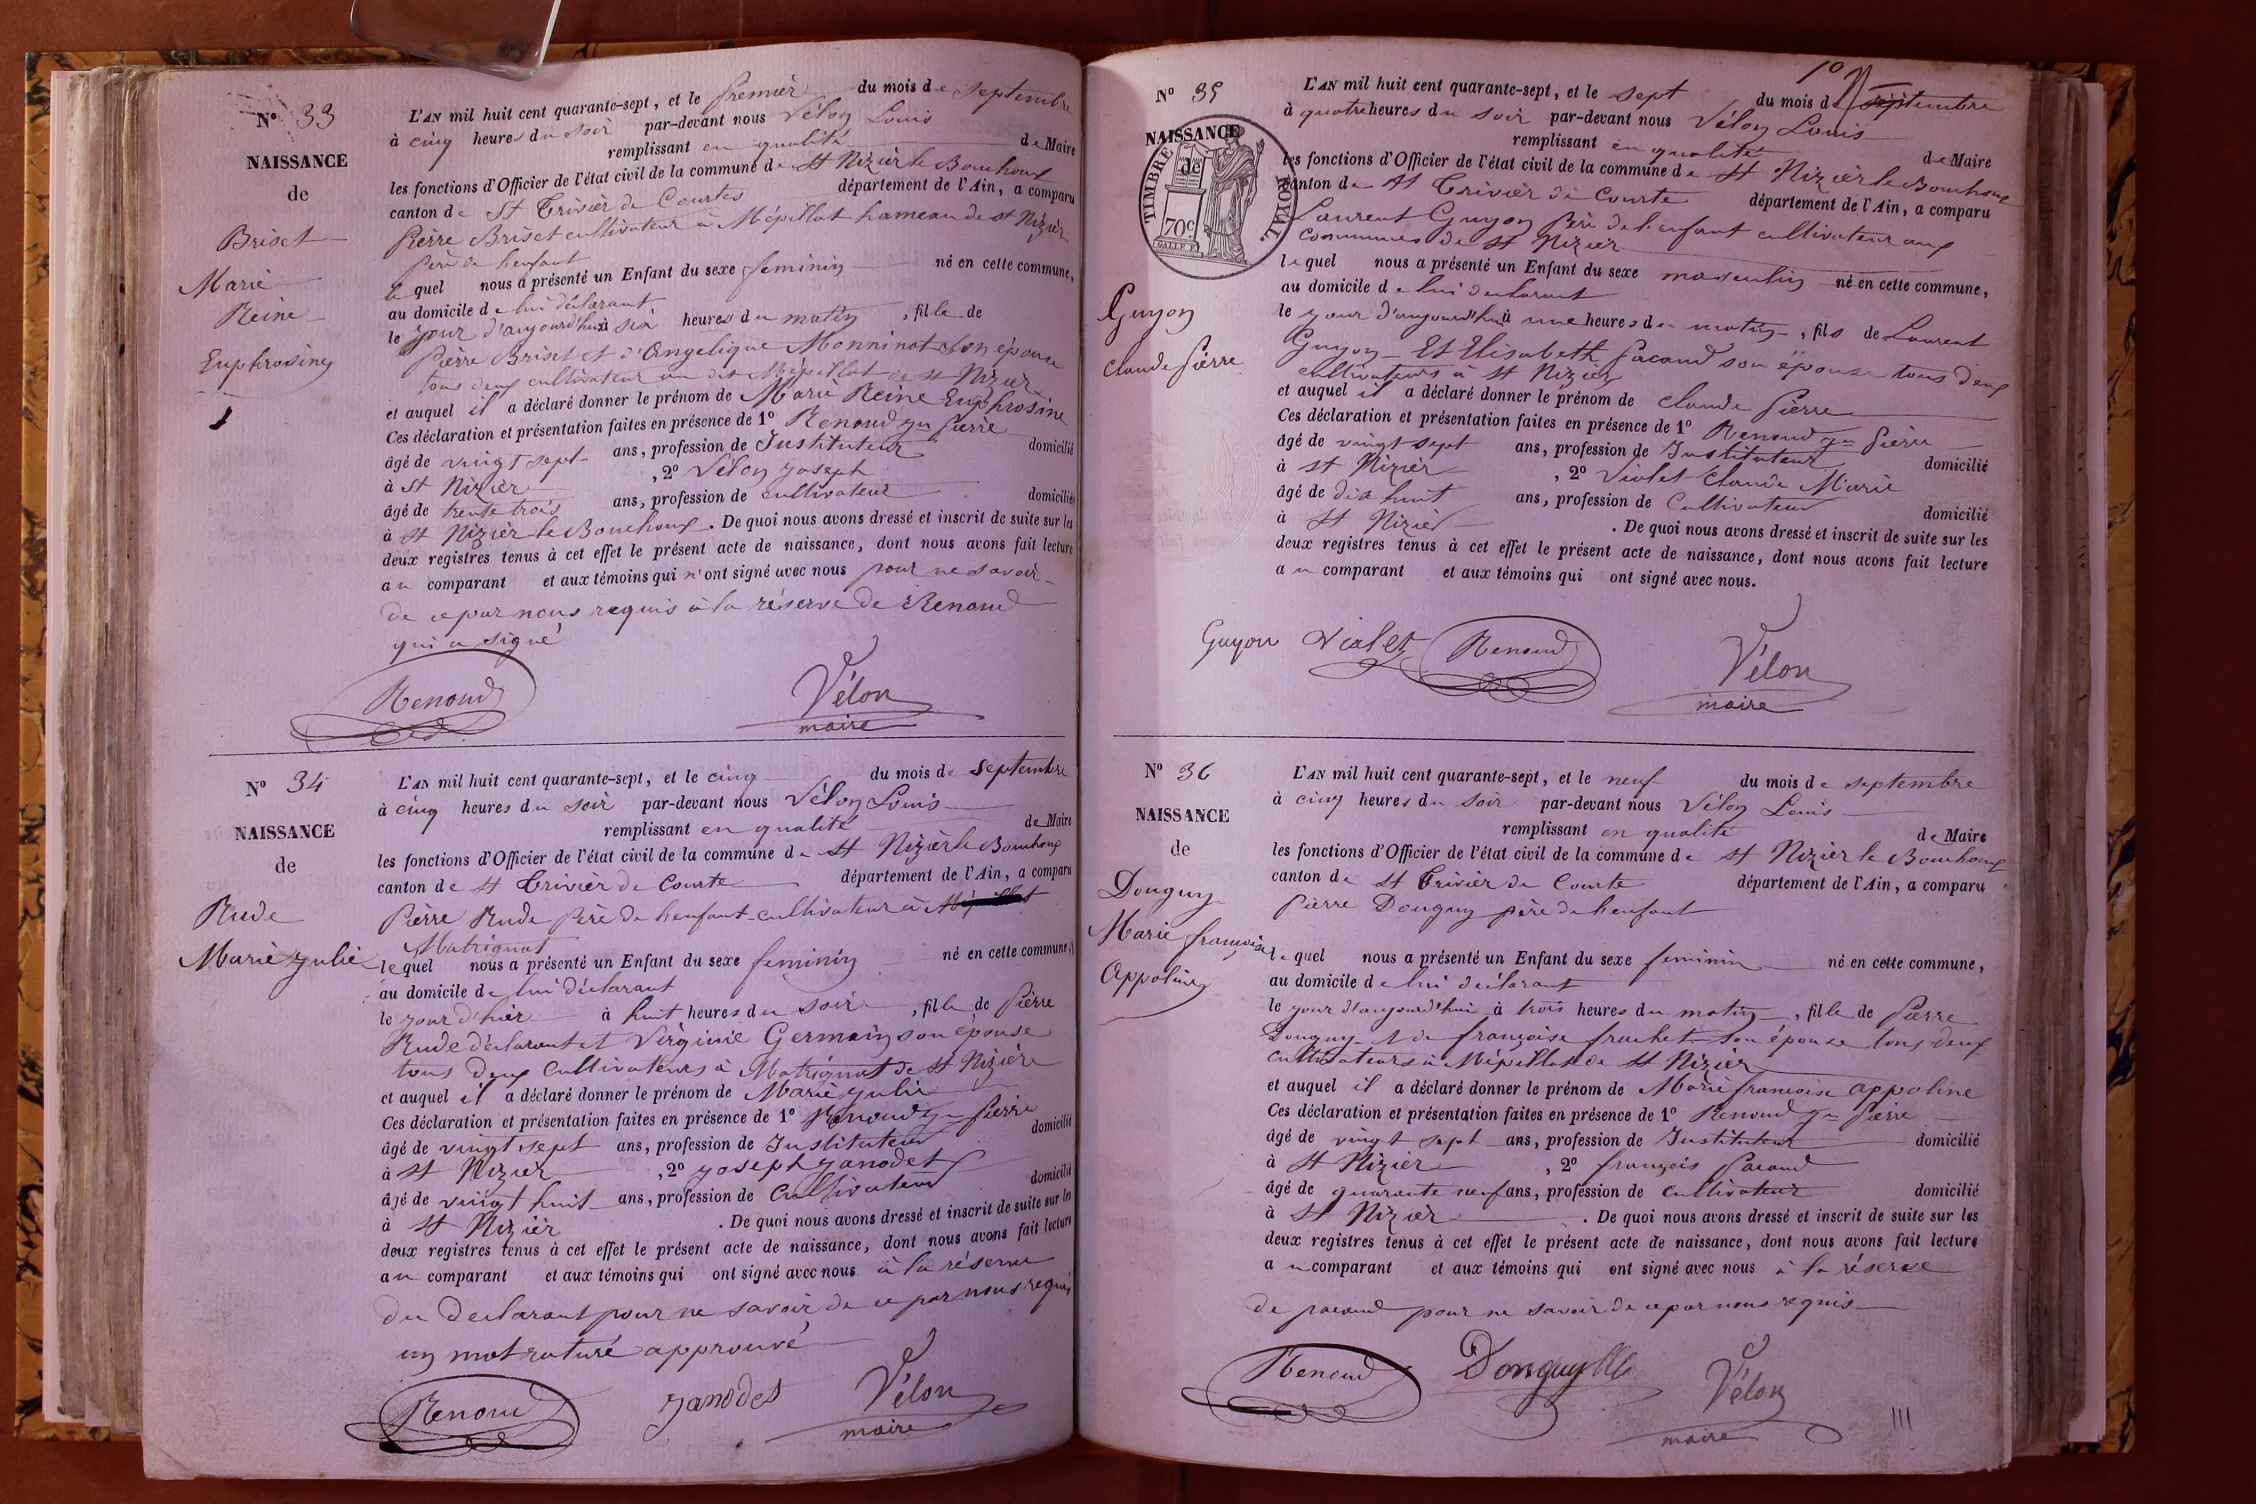 N° 33
NAISSANCE
de
Briset
Marie
Reine
Euphrosine
L'AN mil huit cent quarante-sept, et le premier du mois de septembre
à cinq heures du soir par-devant nous Vélon Louis
remplissant en qualité de Maire
les fonctions d'Officier de l'état civil de la commune de St Nizièr le Bouchoux
canton de St Trivièr de Courtes département de l'Ain, a comparu
Pièrre Briset cultivateur à Mépillat hameau de st Nizièr
père de l'enfant
lequel nous a présenté un Enfant du sexe feminin né en cette commune,
au domicile de lui déclarant
le jour d'aujourd'hui à six heures du matin, fille de
Pièrre Briset et d'Angelique Monninot son épouse
tous deux cultivateur au dit Mépillat de st Nizièr
et auquel il a déclaré donner le prénom de Marie Reine Euphrosine
Ces déclaration et présentation faites en présence de 1° Renoud Pièrre
âgé de vingt sept ans, profession de Instituteur domicilié
à St Nizièr , 2° Vélon joseph
âgé de trente trois ans, profession de cultivateur domicilié
à st Nizièr le Bouchoux. De quoi nous avons dressé et inscrit de suite sur les
deux registres tenus à cet effet le présent acte de naissance, dont nous avons fait lecture
au comparant et aux témoins qui n'ont signé avec nous pour ne savoir
de ce par nous requis à la réserve de Renoud
qui a signé
Renoud Vélon
maire
N° 34
NAISSANCE
de
Rude
Marie julie
L'AN mil huit cent quarante-sept, et le cinq du mois de septembre
à cinq heures du soir par-devant nous Vélon Louis
remplissant en qualité de Maire
les fonctions d'Officier de l'état civil de la commune de st Nizièr le Bouchoux
canton de st Trivièr de Courte département de l'Ain, a comparu
Pièrre Rude père de l'enfant cultivateur à
Matrignat
lequel nous a présenté un Enfant du sexe feminin né en cette commune,
au domicile de lui déclarant
le jour d'hièr à huit heures du soir, fille de Pièrre
Rude déclarant et Virginie Germain son épouse
tous deux cultivateurs à Matrignat de st Nizièr
et auquel il a déclaré donner le prénom de Marie julie
Ces déclaration et présentation faites en présence de 1° Renoud Pièrre
âgé de vingt sept ans, profession de Instituteur domicilié
à st Nizièr , 2° joseph janodet
âgé de vingt huit ans, profession de cultivateur domicilié
à st Nizièr . De quoi nous avons dressé et inscrit de suite sur les
deux registres tenus à cet effet le présent acte de naissance, dont nous avons fait lecture
au comparant et aux témoins qui ont signé avec nous à la réserve
du declarant pour ne savoir de ce par nous requis
un mot raturé approuvé
Renoud janodet Vélon
maire
N° 35
NAISSANCE
de
TIMBRE ROYAL.
70c
Guyon
claude pièrre
L'AN mil huit cent quarante-sept, et le sept du mois de septembre
à quatre heures du soir par-devant nous Vélon Louis
remplissant en qualité de Maire
les fonctions d'Officier de l'état civil de la commune de st Nizièr le Bouchoux
canton de st Trivièr de Courte département de l'Ain, a comparu
Laurent Guyon père de l'enfant cultivateur aux
communes de st Nizièr
lequel nous a présenté un Enfant du sexe masculin né en cette commune,
au domicile de lui declarant
le jour d'aujourd'hui à une heures du matin, fils de Laurent
Guyon Et Elisabeth pacoud son épouse tous deux
cultivateurs à st Nizièr
et auquel il a déclaré donner le prénom de claude Pièrre
Ces déclaration et présentation faites en présence de 1° Renoud Pièrre
âgé de vingt sept ans, profession de Instituteur domicilié
à st Nizièr , 2° Violet claude Marie
âgé de dix huit ans, profession de cultivateur domicilié
à st Nizièr . De quoi nous avons dressé et inscrit de suite sur les
deux registres tenus à cet effet le présent acte de naissance, dont nous avons fait lecture
au comparant et aux témoins qui ont signé avec nous.
Guyon Violet Renoud Vélon
maire
N° 36
NAISSANCE
de
Donguy
Marie françoise
Appoline
L'AN mil huit cent quarante-sept, et le neuf du mois de septembre
à cinq heures du soir par-devant nous Vélon Louis
remplissant en qualité de Maire
les fonctions d'Officier de l'état civil de la commune de st Nizièr le Bouchoux
canton de st Trivièr de Courte département de l'Ain, a comparu
Pièrre Donguy père de l'enfant
lequel nous a présenté un Enfant du sexe feminin né en cette commune,
au domicile de lui déclarant
le jour d'aujourd'hui à trois heures du matin, fille de Pièrre
Donguy & de françoise son épouse tous deux
cultivateurs à Mépillat de st Nizièr
et auquel il a déclaré donner le prénom de Marie francoise appoline
Ces déclaration et présentation faites en présence de 1° Renoud Pièrre
âgé de vingt sept ans, profession de Instituteur domicilié
à st Nizièr , 2° françois pacoud
âgé de quarante neuf ans, profession de cultivateur domicilié
à st Nizièr . De quoi nous avons dressé et inscrit de suite sur les
deux registres tenus à cet effet le présent acte de naissance, dont nous avons fait lecture
au comparant et aux témoins qui ont signé avec nous à la réserve
de pacoud pour ne savoir de ce par nous requis
Renoud Donguy Vélon
maire